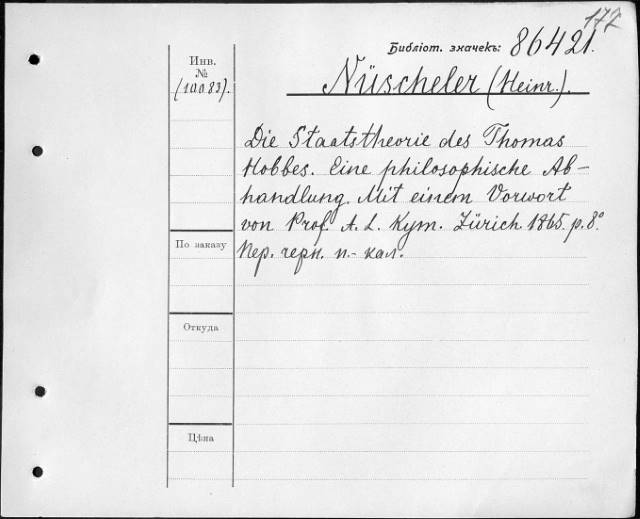 172
Библіот. значекъ: 86421.
Инв.
№
(10.083).
Nüscheler (Heinr.).
Die Staatstheorie des Thomas
Hobbes. Eine philosophische Ab-
handlung. Mit einem Vorwort
von Prof. A. L. Kym. Zürich 1865. p. 8°
Пер. черн. п.-кал.
По заказу
Откуда
Цѣна